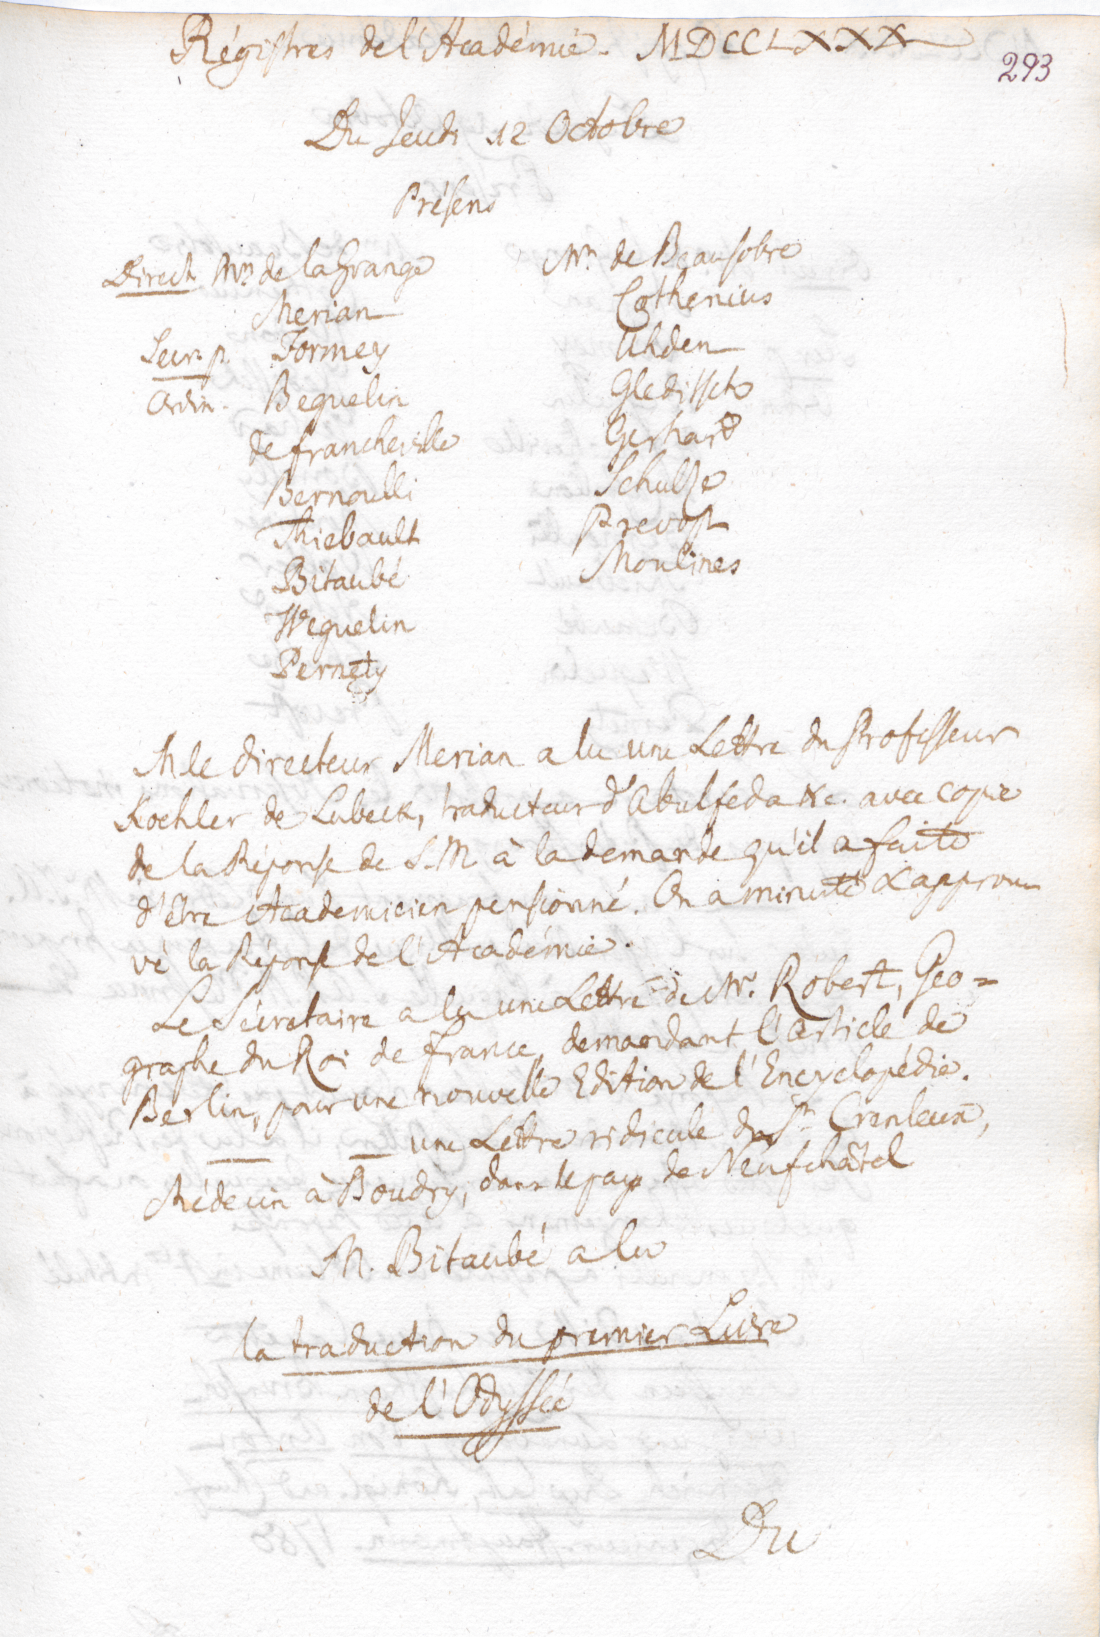 Régistres de l'Académie. MDCCLXXX
293
Du Jeudi 12 Octobre
Présens
Direct. Mrs. de la Grange
Merian
Secr. p. Formey
Ordin. Beguelin
de Francheville
Bernoulli
Thiebault
Bitaubé
Weguelin
Pernety
Mrs. de Beausobre
Cothenius
Uhden
Gleditsch
Gerhard
Schulze
Prevost
Moulines
M le directeur Merian a lu une Lettre du Professeur
Koehler de Lubeck, traducteur d'Abulfeda &c. avec copie
de la Réponse de S.M à la demande qu'il a faite
d'être Academicien pensionné. On a minuté & approu-
vé la Réponse de l'Académie.
Le Sécretaire a lu une Lettre de Mr. Robert, Geo=
graphe du Roi de France, demandant l'article de
Berlin, pour une nouvelle Edition de l'Encyclopédie.
— — une Lettre ridicule du Sr. Crenleux,
Médecin à Boudry, dans le pays de Neufchâtel
M. Bitaubé a lu
la traduction du premier Livre
de l'Odyssée
Du